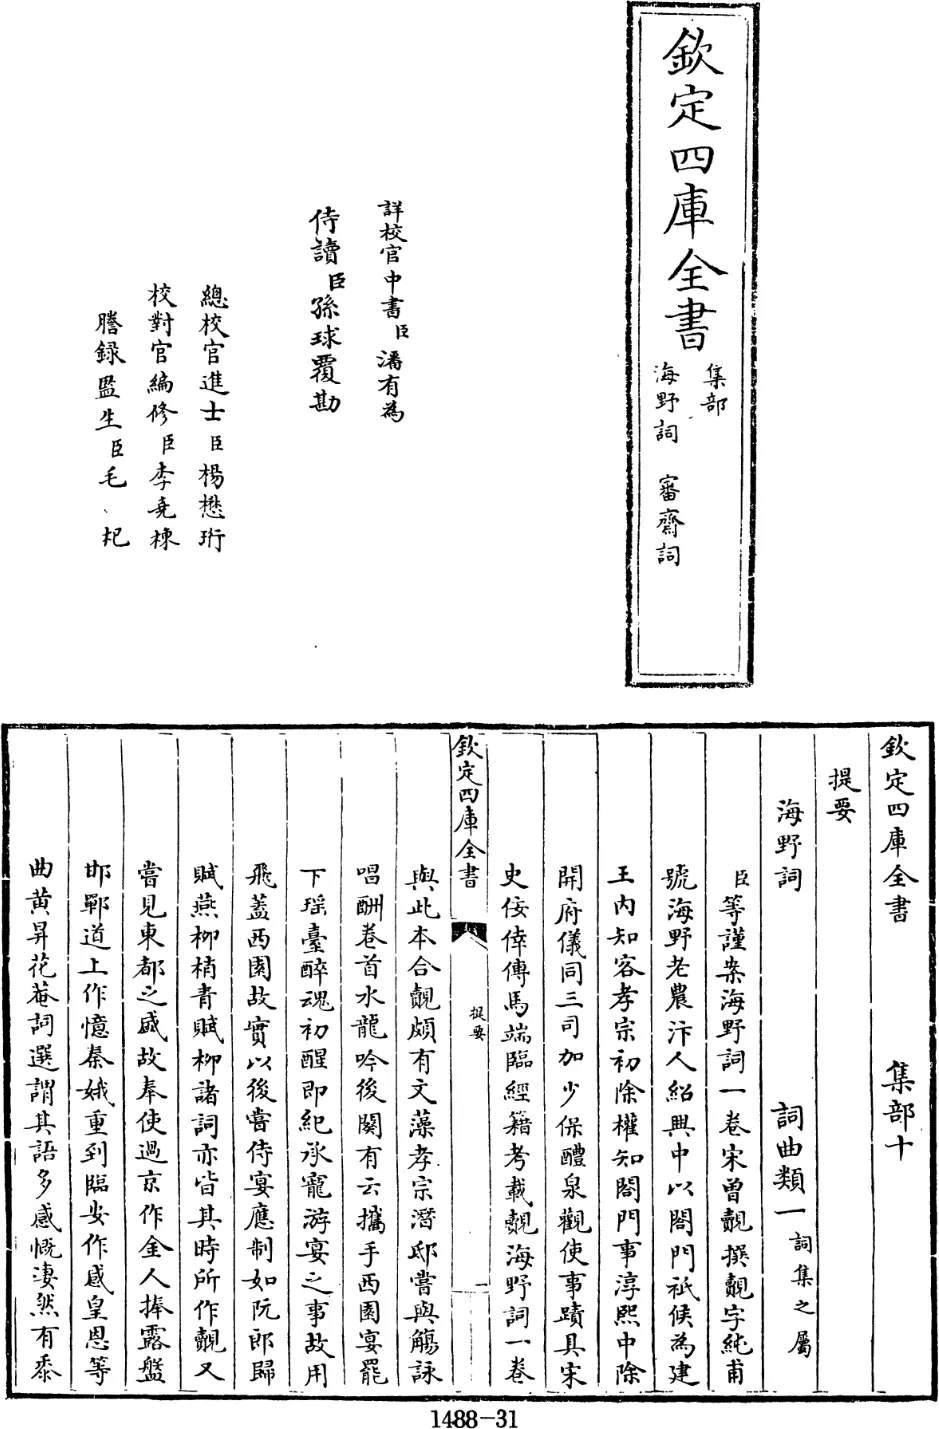 欽定四庫全書
集部
海野詞　審齋詞
詳校官中書臣潘有為
侍讀臣孫球覆勘
總校官進士臣楊懋珩
校對官編修臣李堯棟
謄錄監生臣毛杞
欽定四庫全書　集部十
提要
海野詞　詞曲類一詞集之屬
臣等謹案海野詞一卷宋曾覿撰覿字純甫
號海野老農汴人紹興中以閤門祇候為建
王内知客孝宗初除權知閤門事淳熙中除
開府儀同三司加少保醴泉觀使事蹟具宋
史佞倖傳馬端臨經籍考載覿海野詞一卷
欽定四庫全書
提要
一
與此本合覿頗有文藻孝宗潛邸嘗與觴詠
唱酬卷首水龍吟後闋有云攜手西園宴罷
下瑶臺醉魂初醒即紀承寵游宴之事故用
飛蓋西園故實以後嘗侍宴應制如阮郎歸
賦燕柳梢青賦柳諸詞亦皆其時所作覿又
嘗見東都之盛故奉使過京作金人捧露盤
邯鄲道上作憶秦娥重到臨安作感皇恩等
曲黄昇花菴詞選謂其語多感慨凄然有黍
1488-31